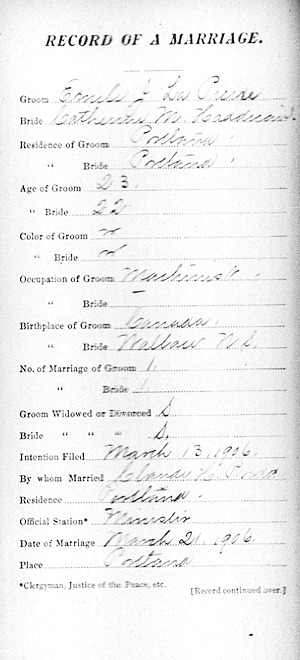 RECORD OF A MARRIAGE.
Groom Emile J La Pierre
Bride Catherine M.
Residence of Groom Portland
" Bride Portland
Age of Groom 23
" Bride 22
Color of Groom W
" Bride W
Occupation of Groom Machinist
" Bride —
Birthplace of Groom Canada
" Bride Wallace N.S.
No. of Marriage of Groom 1
" Bride 1
Groom Widowed or Divorced S
Bride " " " S.
Intention Filed March 13, 1906.
By whom Married Claude H.
Residence Portland.
Official Station* Minister
Date of Marriage March 21, 1906.
Place Portland
*Clergyman, Justice of the Peace, etc.
[Record continued over.]